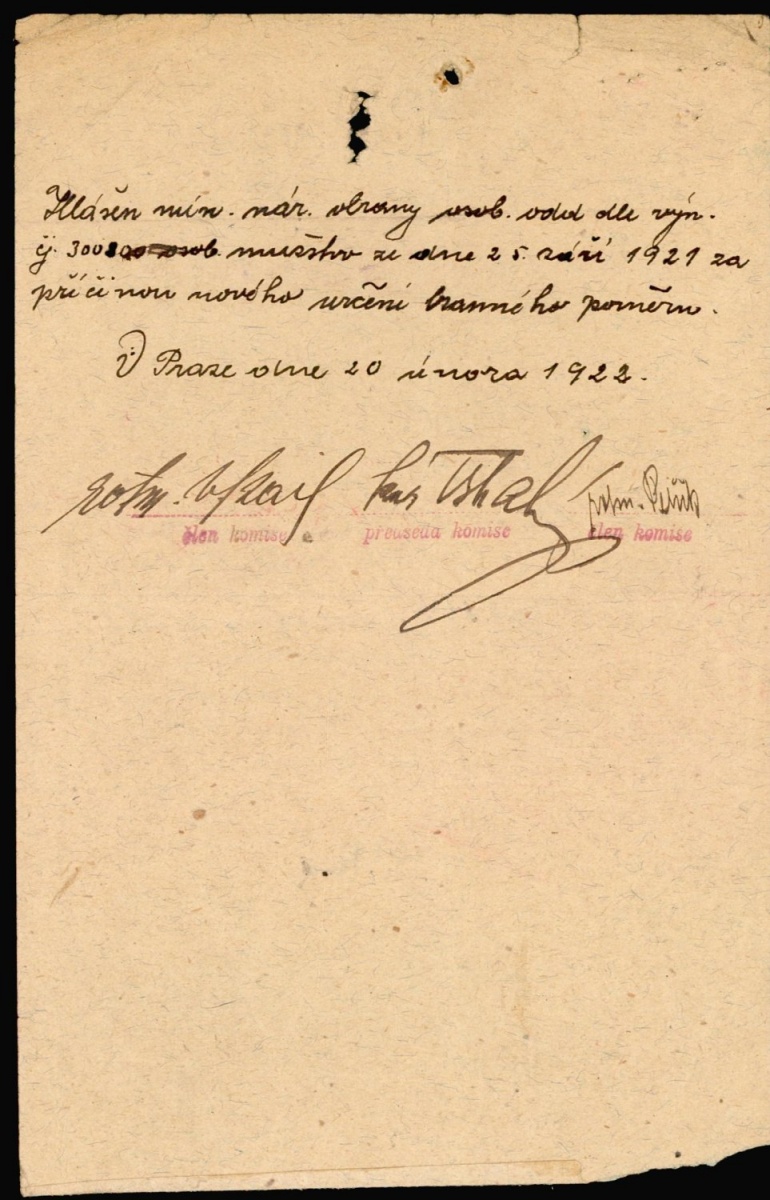 Hlášen min. nár. obrany osob. odd dle výn.
čj. 300800 osob. mužstvo ze dne 25. září 1921 za
příčinou nového určení branného poměru.
V Praze dne 20 února 1922.
rotm.
člen komise předseda komise člen komise